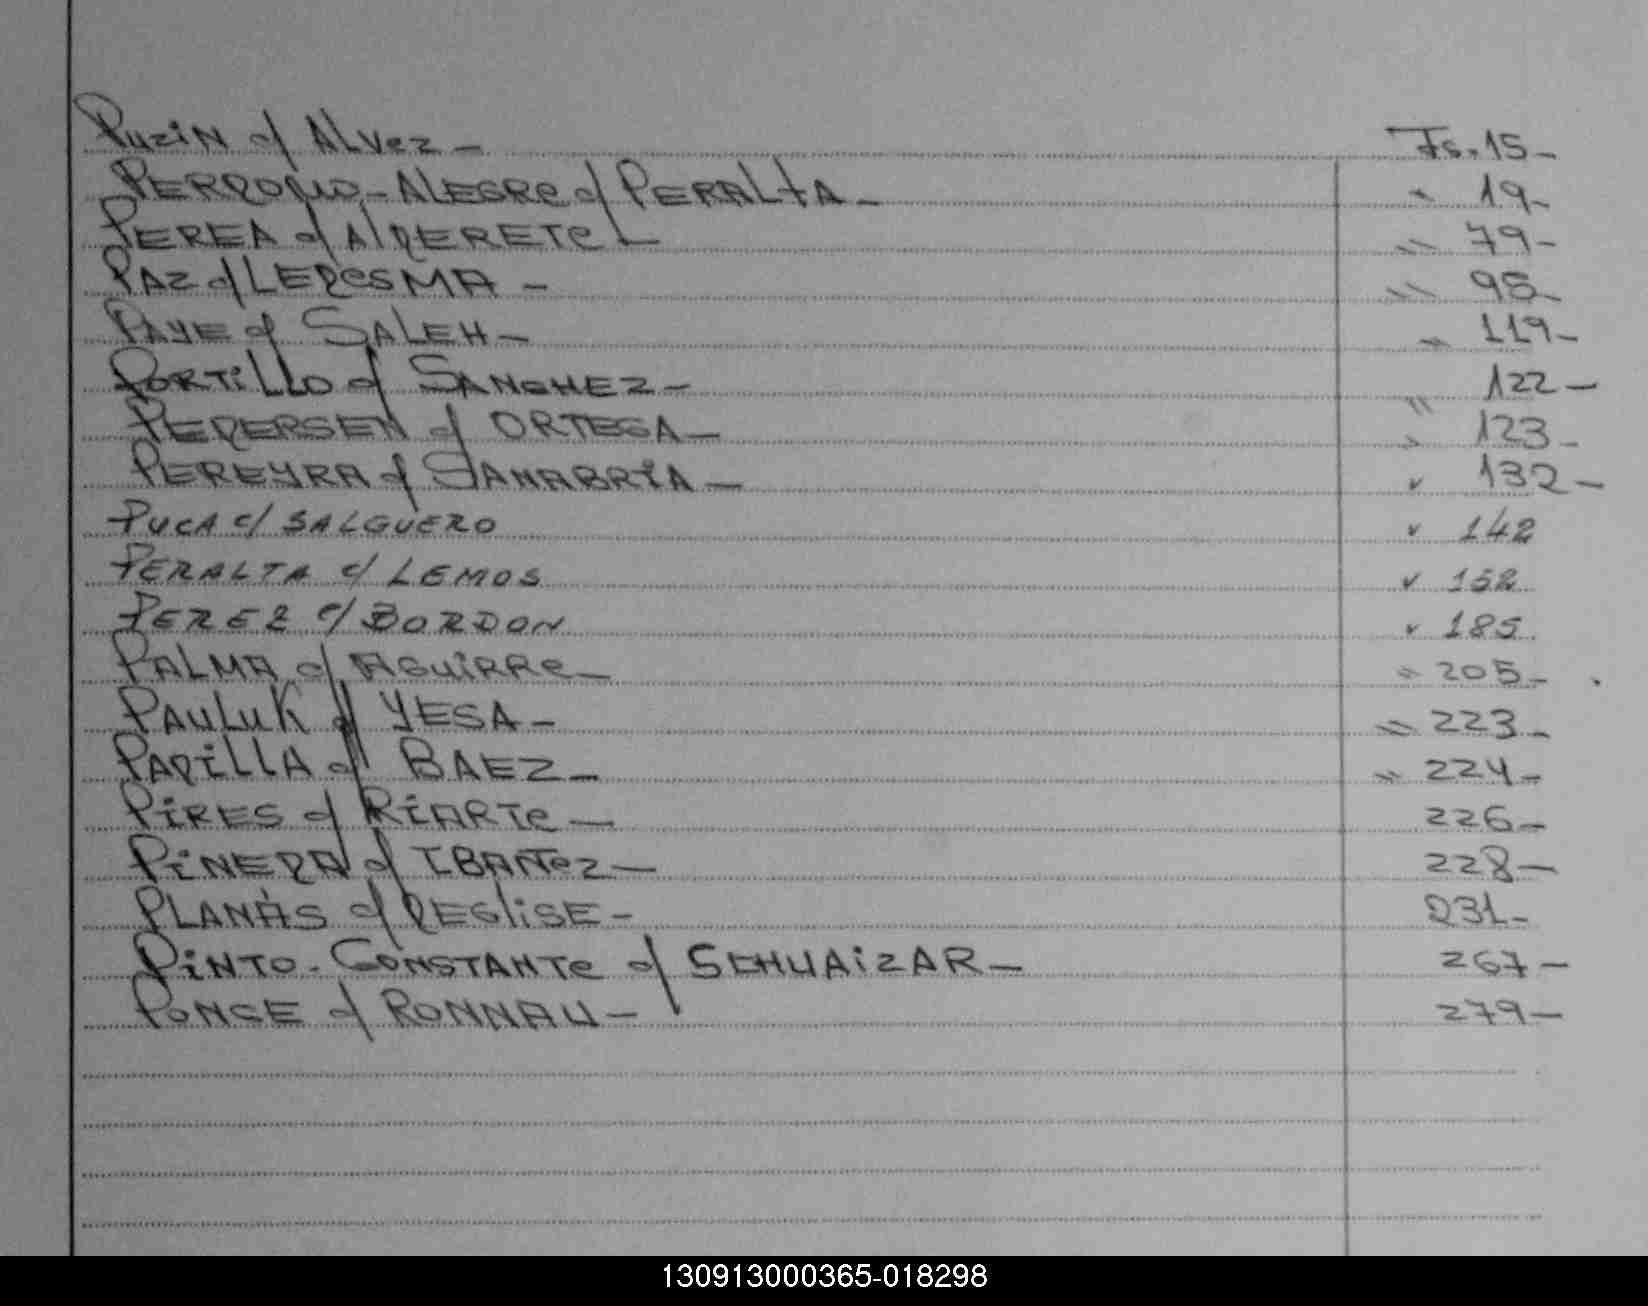 Puzin c/ Alvez - Fs. 15-
PERDOMO-ALEGRE c/ PERALTA - " 19-
PEREA c/ AlDERETE - " 79-
PAZ c/ LEDESMA - " 95-
PAYE c/ SALEH - " 119-
PORTILLO c/ SANCHEZ - " 122-
PEDERSEN c/ ORTEGA - " 123-
PEREYRA c/ SANABRIA - " 132-
PUCA c/ SALGUERO " 142
PERALTA c/ LEMOS " 152
PEREZ c/ BORDON " 185
PALMA c/ AGUIRRE - " 205-
PAULUK c/ YESA - " 223-
PADILLA c/ BAEZ - " 224-
PIRES c/ RIARTE - 226-
PINEDA c/ IBAÑEZ - 228-
PLANÁS c/ DEGLISE - 231-
PINTO-CONSTANTE c/ SCHUAIZAR - 267-
PONCE c/ RONNAU - 279-
130913000365-018298